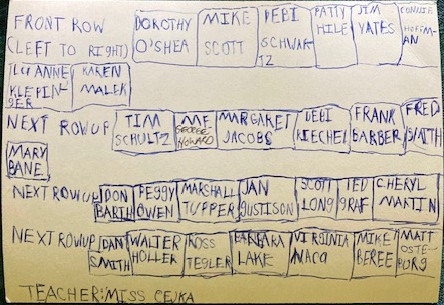 FRONT ROW
(LEFT TO RIGHT)
DOROTHY O'SHEA
MIKE SCOTT
DEBI SCHWARTZ
PATTY HILE
JIM YATES
CONNIE HOFFMAN
ANNE KLEPINGER
KAREN MALEK
NEXT ROW UP
TIM SCHULTZ
ME
GEORGE HOWARD
MARGARET JACOBS
DEBI
FRANK BARBER
FRED SMITH
MARY BANE
NEXT ROW UP
DON BARTH
PEGGY OWEN
MARSHALL TUPPER
JAN GUSTISON
SCOTT LONG
TED GRAF
CHERYL MARTIN
NEXT ROW UP
DAN SMITH
WALTER HOLLER
ROSS TEGLER
BARBARA LAKE
VIRGINIA
MIKE BEREE
MATT
TEACHER: MISS CEJKA